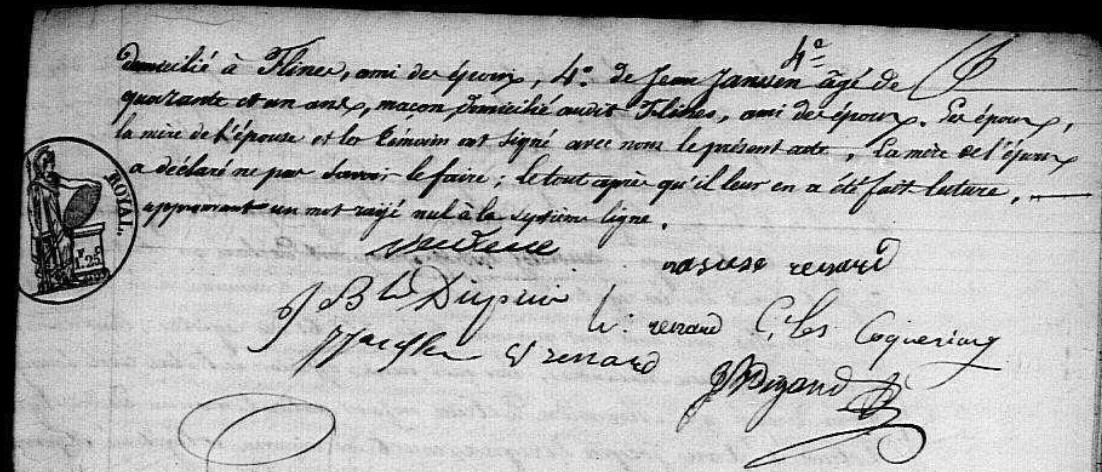 4e
domicilié à Flines, ami des époux, 4o de Jean Janssen âgé de
quarante et un ans, maçon domicilié audit Flines, ami des époux. Les époux,
la mère de l'épouse et les témoins ont signé avec nous le présent acte, la mère de l'époux
a déclaré ne pas savoir le faire; le tout après qu'il leur en a été fait lecture.
approuvant un mot rayé nul à la septième ligne.
ROYAL.
25
renard
Bte Dupuis
renard C. Coqueriau
renard